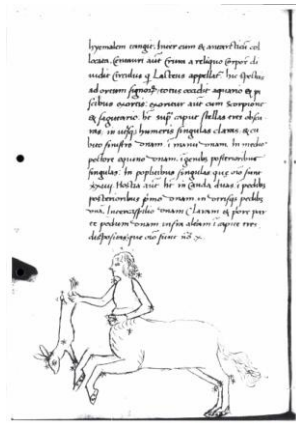 hyemalem tangit. Inter eum & antarcticũ col
locata. Centauri aut crura a reliquo corpore di
uidit circulus q̃ Lacteus appellat. hic spectas
ad ortum signorꝫ totus occidit aquario & pi
scibus exortis: exoritur aut cum scorpione
& sagittario. hic sup̃ caput stellas tres obscu
ras. in utrisqꝫ humeris singulas claras. & cu
bito sinistro unam i manu unam. In medio
pectore equino unam. i genibꝫ posterioribus
singulas. In poplitibus singulas que oẽs sunt
Hostia aut hec in Cauda duas. i pedibꝫ
posterioribus primo unam in utrisqꝫ pedibꝫ
unã. unam Claram & pore
pedum unam infra aliam i capite tres
dispositas que oẽs sunt nõ x.